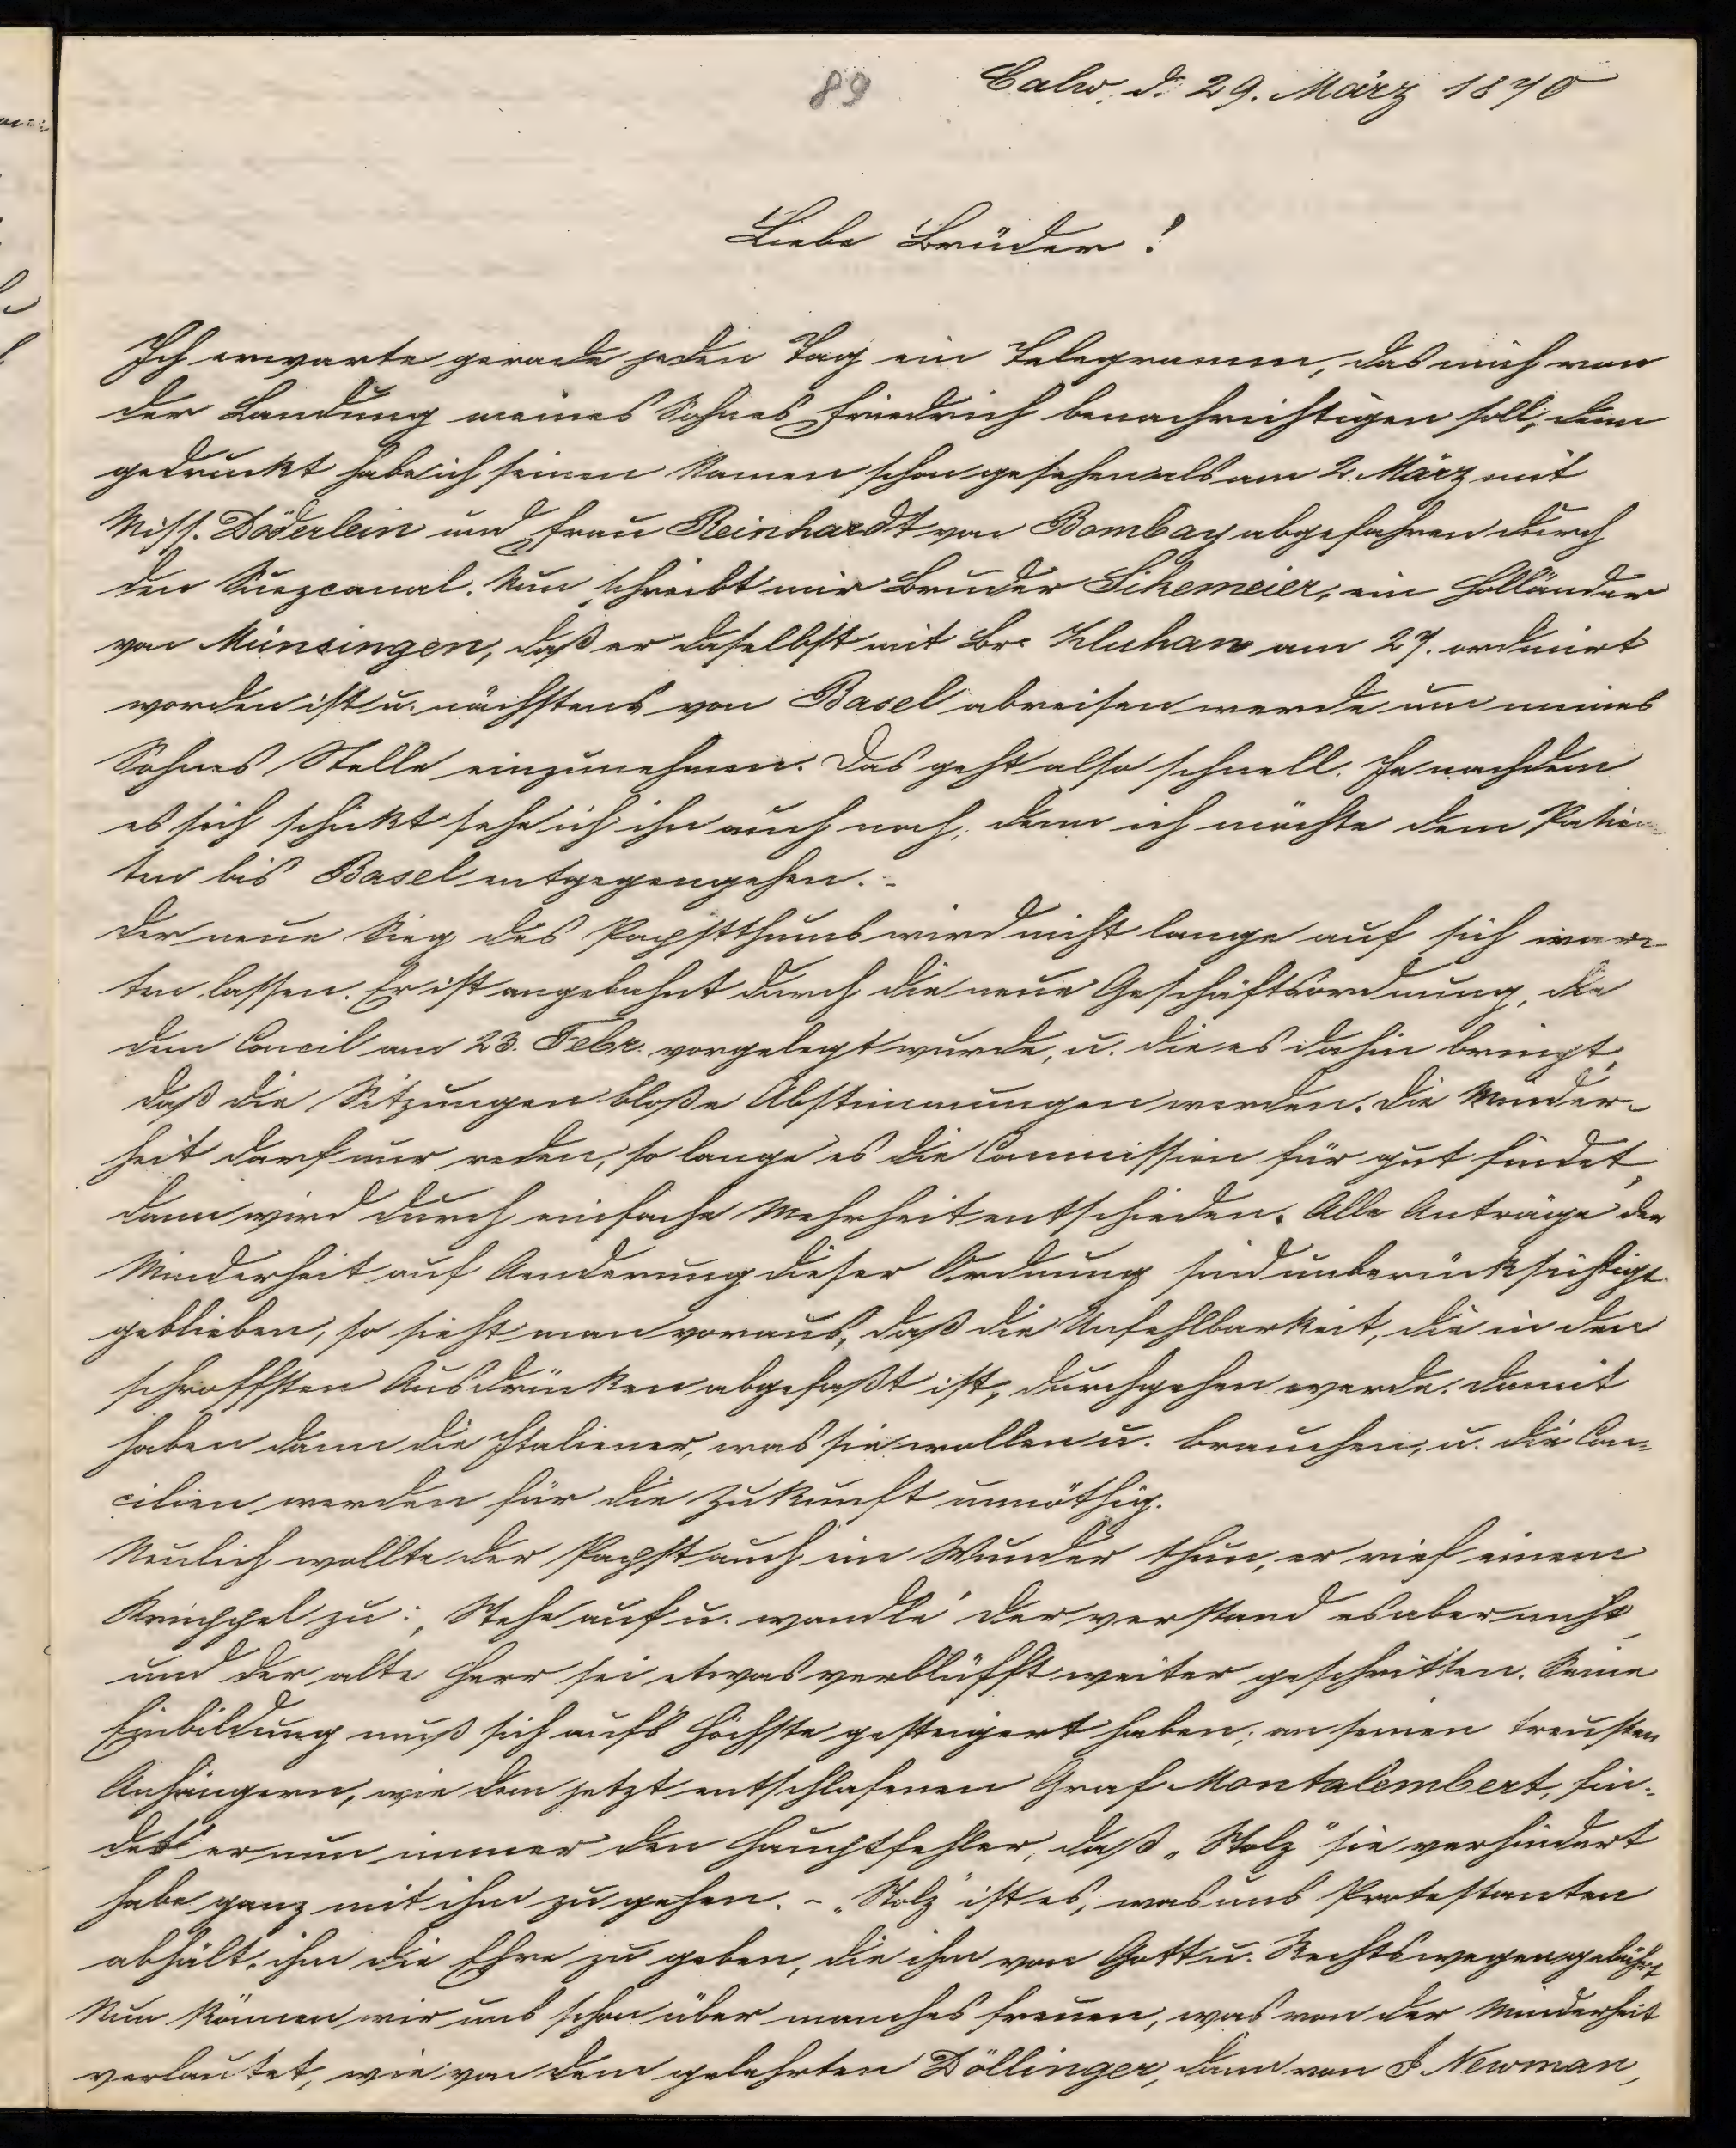 89 Calw, d. 29. März 1870
Liebe Brüder!
Ich erwarte gerade jeden Tag ein Telegramm, das mich von
der Landung meines Sohnes Friedrich benachrichtigen soll, denn
gedruckt habe ich seinen Namen schon gesehen als am 2. März mit
Miss. Döderlein und Frau Reinhardt von Bombay abgefahren durch
den Suezcanal. Nun schreibt mir Bruder Sikemeier, ein Holländer
von Münsingen, daß er daselbst mit Br. Kluhan am 27. ordinirt
worden ist u. nächstens von Basel abreisen werde um meines
Sohnes Stelle einzunehmen. Das geht also schnell. Je nachdem
es sich schickt sehe ich ihn auch noch, denn ich möchte dem Patien
ten bis Basel entgegengehen. -
Der neue Sieg des Papstthums wird nicht lange auf sich war-
ten lassen. Er ist angebahnt durch die neue Geschäftsordnung, die
dem Concil am 23. Febr. vorgelegt wurde, u. die es dahin bringt,
daß die Sitzungen bloße Abstimmungen werden. Die Minder-
heit darf nur reden, so lange es die Commission für gut findet,
dann wird durch einfache Mehrheit entschieden. Alle Anträge der
Minderheit auf Aenderung dieser Ordnung sind unberücksichtigt
geblieben, so sieht man voraus, daß die Unfehlbarkeit, die in den
schroffsten Ausdrücken abgefaßt ist, durchgehen werde. Damit
haben dann die Italiener, was sie wollen u. brauchen, u. die Con-
cilien werden für die Zukunft unnöthig.
Neulich wollte der Papst auch ein Wunder thun, er rief einem
Krüppel zu: „Stehe auf u. wandle" der verstand es aber nicht,
und der alte Herr sei etwas verblüfft weiter geschritten. Seine
Einbildung muß sich aufs Höchste gesteigert haben; an seinen treusten
Anhängern, wie dem jetzt entschlafenen Graf Montalembert, fin-
det er nun immer den Hauptfehler, daß „Stolz" sie verhindert
habe ganz mit ihm zu gehen. - „Stolz" ist es, was uns Protestanten
abhält, ihm die Ehre zu geben, die ihm von Gott u. Rechtswegen gebührt.
Nun können wir uns schon über manches freuen, was von der Minderheit
verlautet, wie von dem gelehrten Döllinger, dann von J Newman,